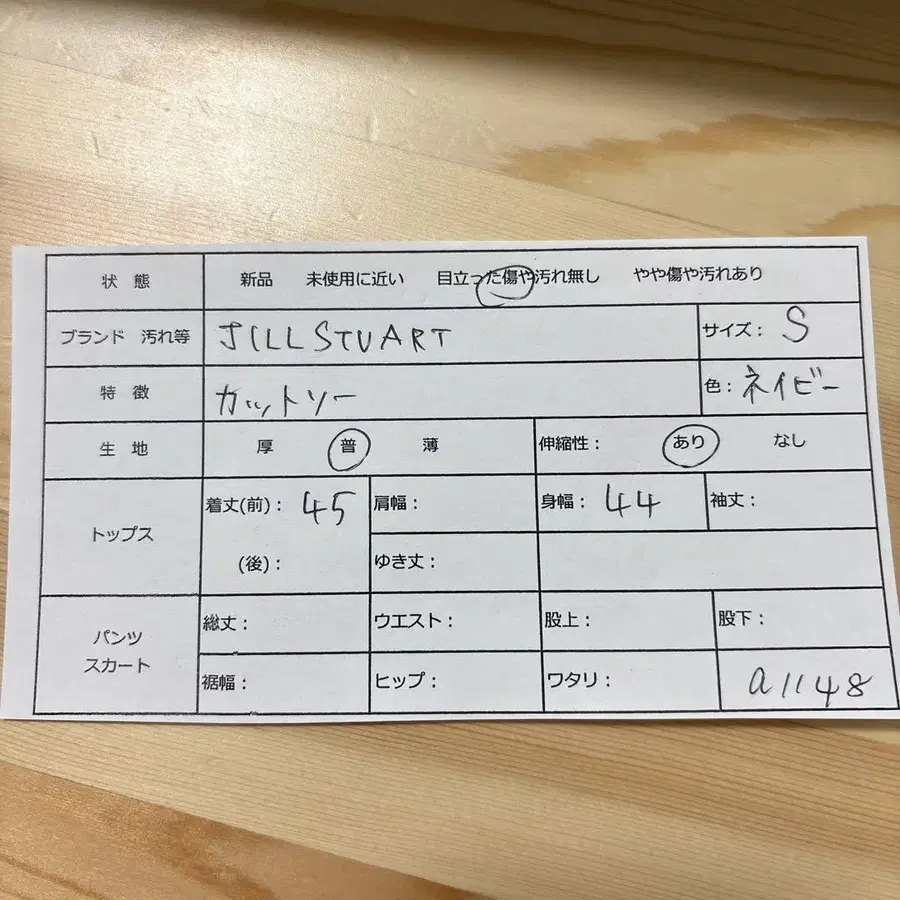 状 態 新品 未使用に近い 目立った傷や汚れ無し やや傷や汚れあり
ブランド 汚れ等 JILLSTUART サイズ： S
特 徴 カットソー 色： ネイビー
生 地 厚 普 薄 伸縮性： あり なし
トップス 着丈(前)： 45 肩幅： 身幅： 44 袖丈：
(後)： ゆき丈：
パンツ スカート 総丈： ウエスト： 股上： 股下：
裾幅： ヒップ： ワタリ： a1148